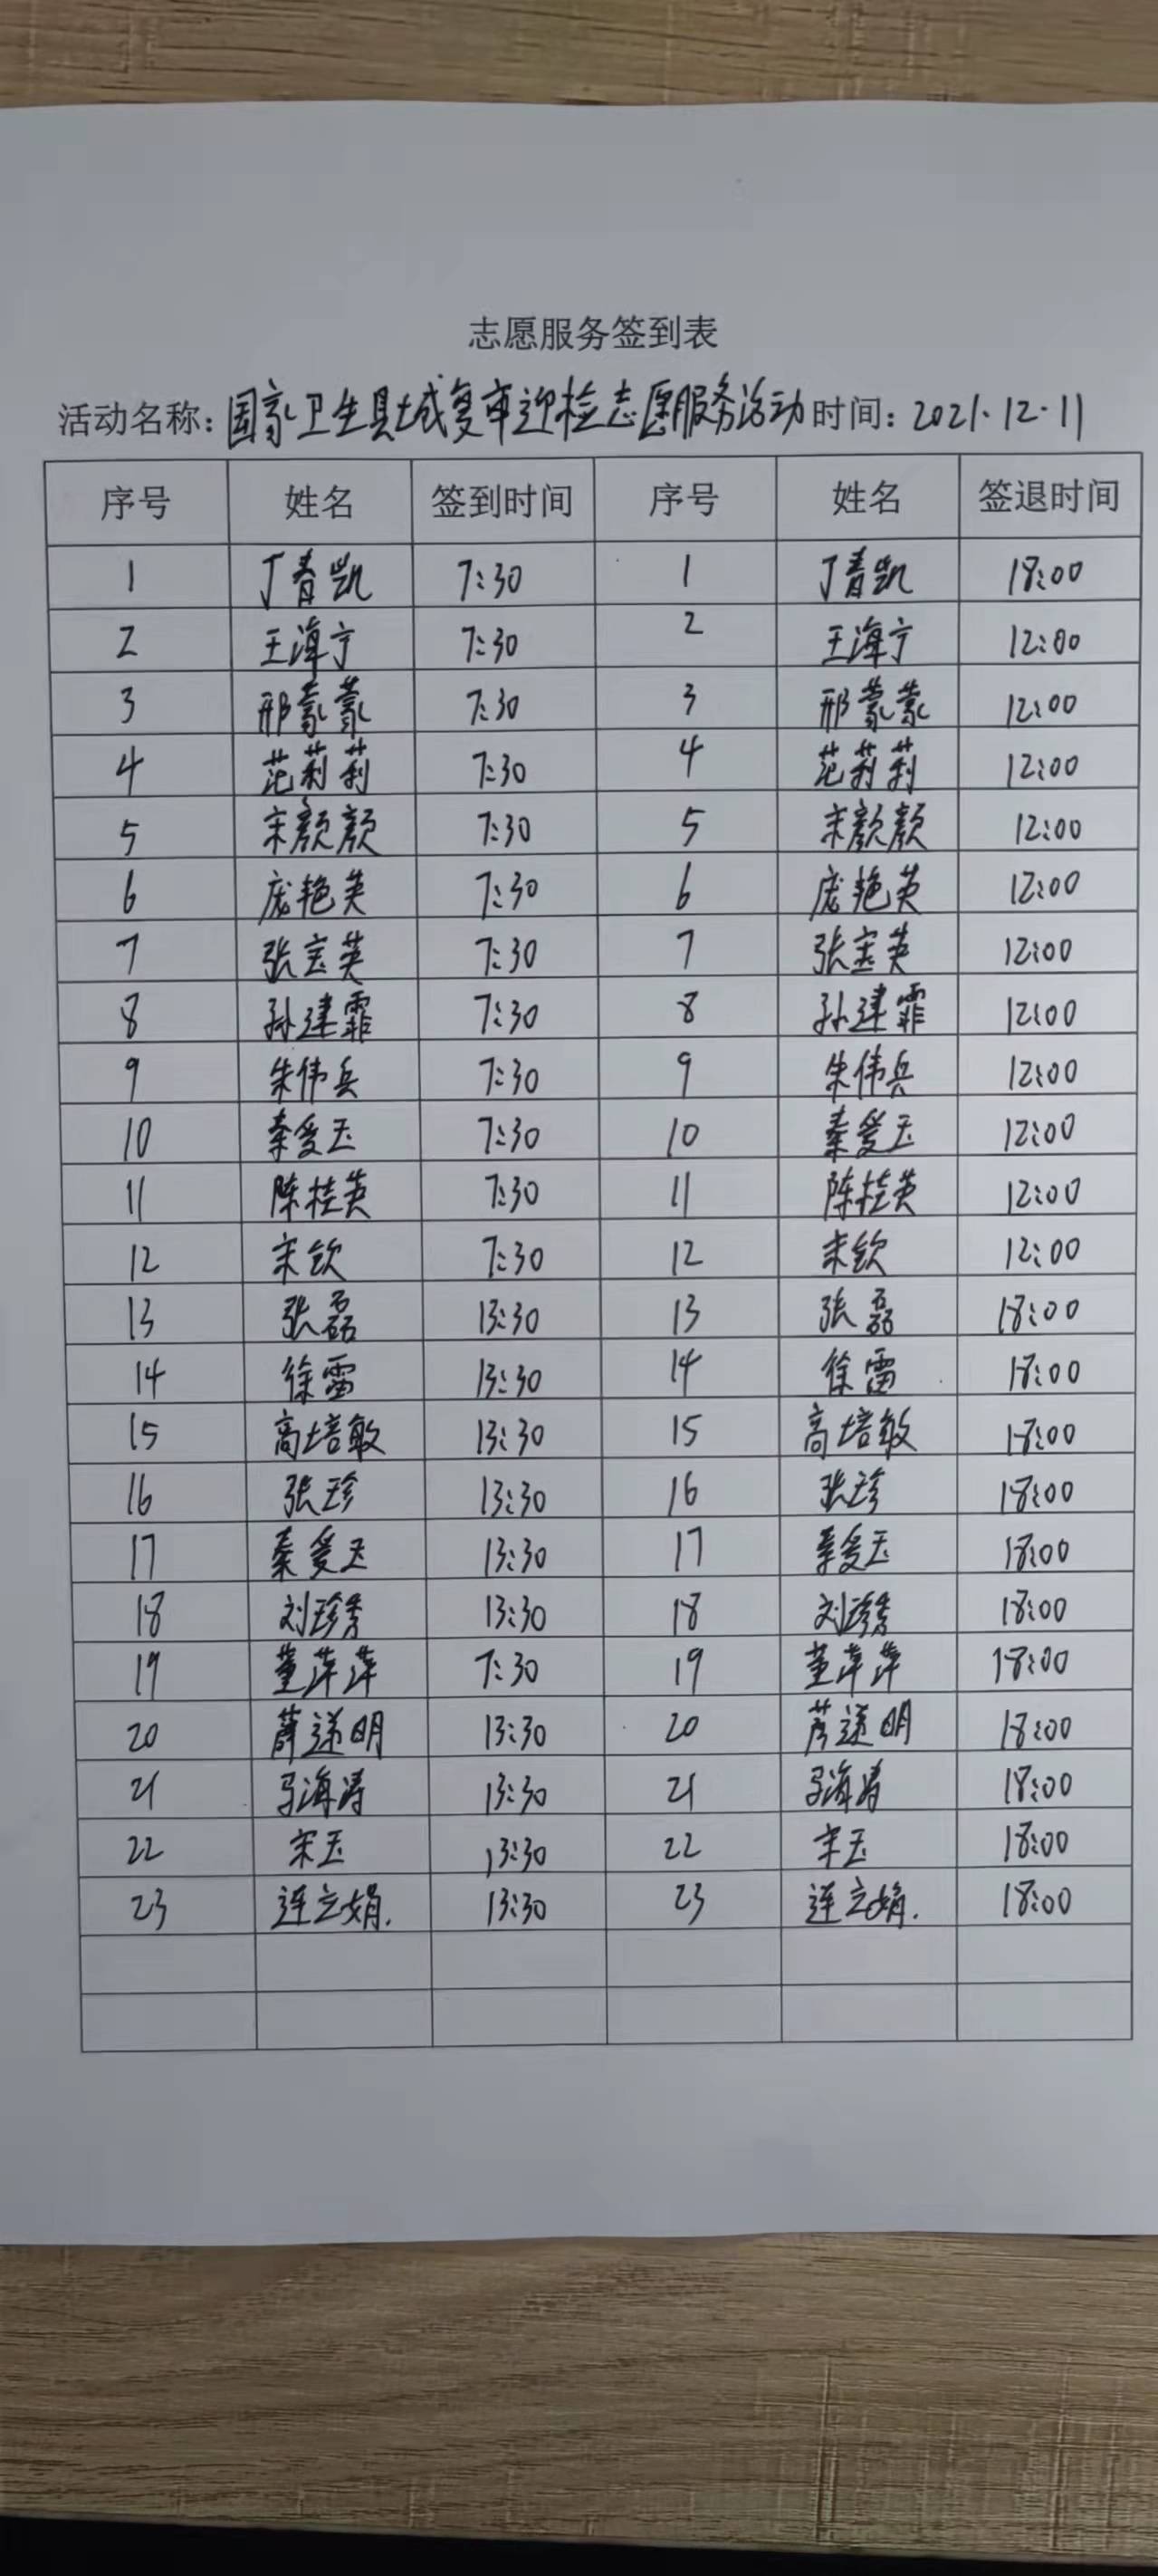 志愿服务签到表
活动名称：国家卫生县城复审迎检志愿服务活动 时间：2021.12.11
序号 姓名 签到时间 序号 姓名 签退时间
1 丁青凯 7:30 1 丁青凯 18:00
2 王海宁 7:30 2 王海宁 12:00
3 邢蒙蒙 7:30 3 邢蒙蒙 12:00
4 范莉莉 7:30 4 范莉莉 12:00
5 宋颜颜 7:30 5 宋颜颜 12:00
6 庞艳英 7:30 6 庞艳英 12:00
7 张宝英 7:30 7 张宝英 12:00
8 孙建霏 7:30 8 孙建霏 12:00
9 朱伟兵 7:30 9 朱伟兵 12:00
10 秦爱玉 7:30 10 秦爱玉 12:00
11 陈桂英 7:30 11 陈桂英 12:00
12 宋钦 7:30 12 宋钦 12:00
13 张磊 13:30 13 张磊 18:00
14 徐雷 13:30 14 徐雷 18:00
15 高培敏 13:30 15 高培敏 18:00
16 张珍 13:30 16 张珍 18:00
17 秦爱玉 13:30 17 秦爱玉 18:00
18 刘珍秀 13:30 18 刘珍秀 18:00
19 董萍萍 7:30 19 董萍萍 18:00
20 13:30 20 18:00
21 马海涛 13:30 21 马海涛 18:00
22 宋玉 13:30 22 宋玉 18:00
23 连立娟. 13:30 23 连立娟. 18:00